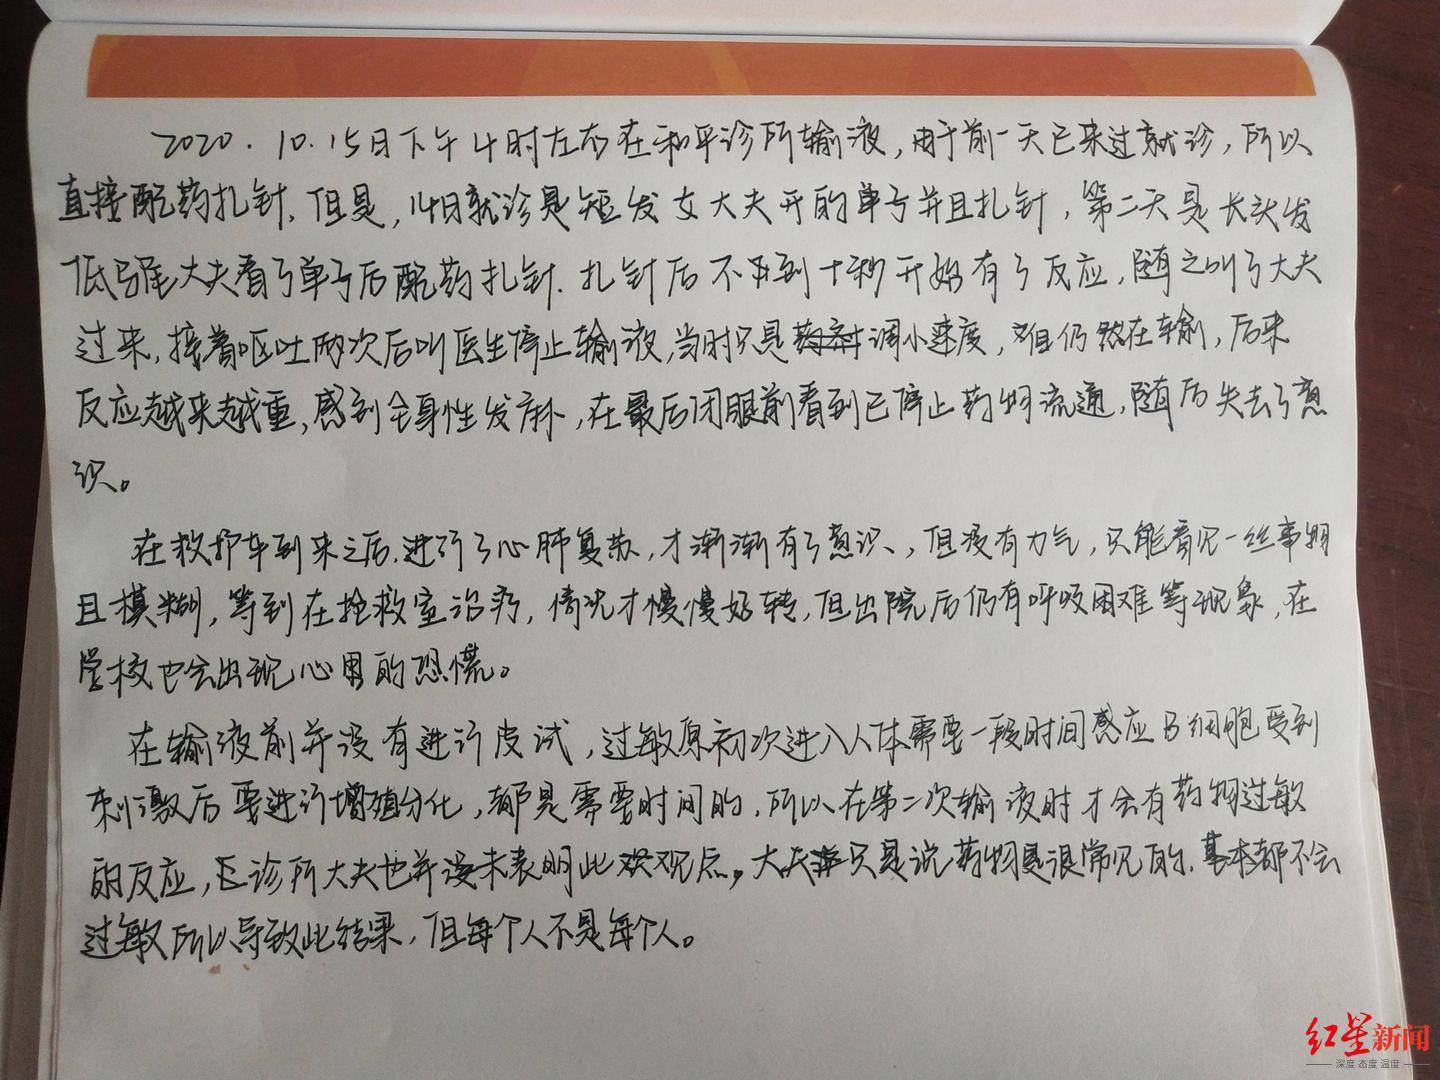 2020.10.15日下午4时左右在和平诊所输液，由于前一天已来过就诊，所以
直接配药扎针. 但是，14日就诊是短发女大夫开的单子并且扎针，第二天是长头发
低马尾大夫看了单子后配药扎针. 扎针后不到十秒开始有了反应，随之叫了大夫
过来，接着呕吐两次后叫医生停止输液，当时只是调小速度，但仍然在输，后来
反应越来越重，感到全身性发麻，在最后闭眼前看到已停止药物流通，随后失去了意
识。
在救护车到来之后.进行了心肺复苏，才渐渐有了意识、但没有力气，只能看见一丝事物
且模糊，等到在抢救室治疗，情况才慢慢好转，但出院后仍有呼吸困难等现象，在
学校也会出现心里的恐慌。
在输液前并没有进行皮试，过敏原初次进入人体需要一段时间感应B细胞受到
刺激后要进行增殖分化，都是需要时间的. 所以在第二次输液时才会有药物过敏
的反应，诊所大夫也并未表明此观点，大夫只是说药物是很常见的. 基本都不会
过敏所以导致此结果，但每个人不是每个人。
红星新闻
深度 态度 温度